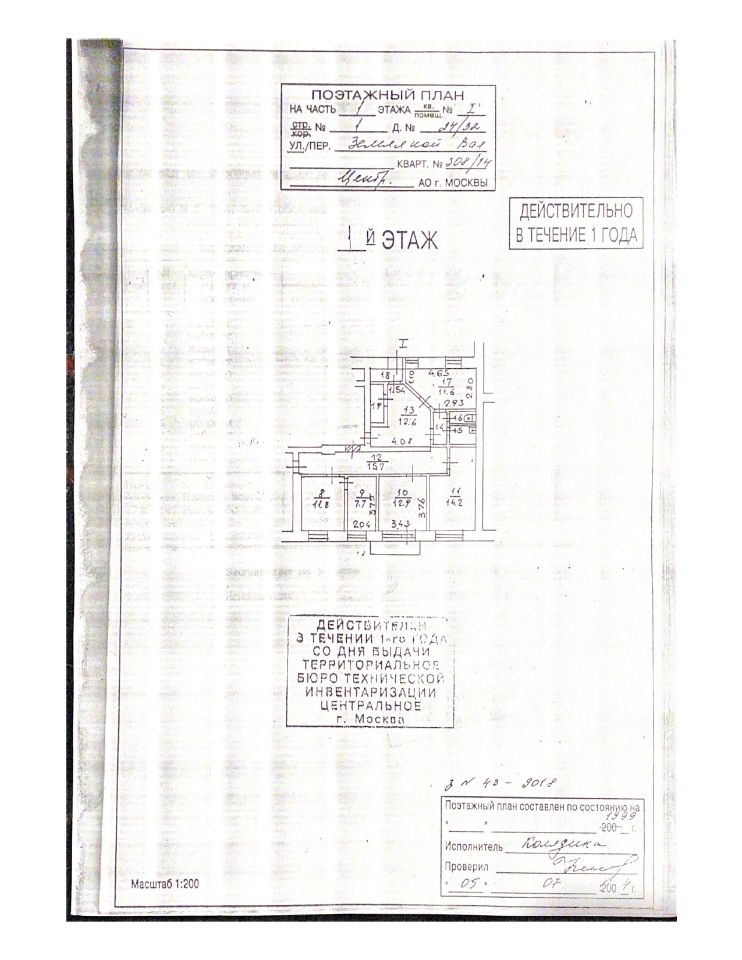 ПОЭТАЖНЫЙ ПЛАН
НА ЧАСТЬ 1 ЭТАЖА кв. помещ. № I
стр. кор. № 1 Д. № 24/32
УЛ./ПЕР. Земляной Вал
КВАРТ. № 308/14
Центр. АО г. МОСКВЫ
ДЕЙСТВИТЕЛЬНО
В ТЕЧЕНИЕ 1 ГОДА
1 Й ЭТАЖ
I
18
1.54
4.65
17
11.6
2.80
2.93
19
13
12.6
14
16
15
4.08
12
15.7
8
11.8
9
7.7
3.75
2.04
10
12.9
3.76
3.43
11
14.2
ДЕЙСТВИТЕЛЕН
В ТЕЧЕНИИ 1-го ГОДА
СО ДНЯ ВЫДАЧИ
ТЕРРИТОРИАЛЬНОЕ
БЮРО ТЕХНИЧЕСКОЙ
ИНВЕНТАРИЗАЦИИ
ЦЕНТРАЛЬНОЕ
г. Москва
з № 43 - 2018
Поэтажный план составлен по состоянию на
1999
" " 200 г.
Исполнитель
Проверил
" 05 " 07 200 4 г.
Масштаб 1:200